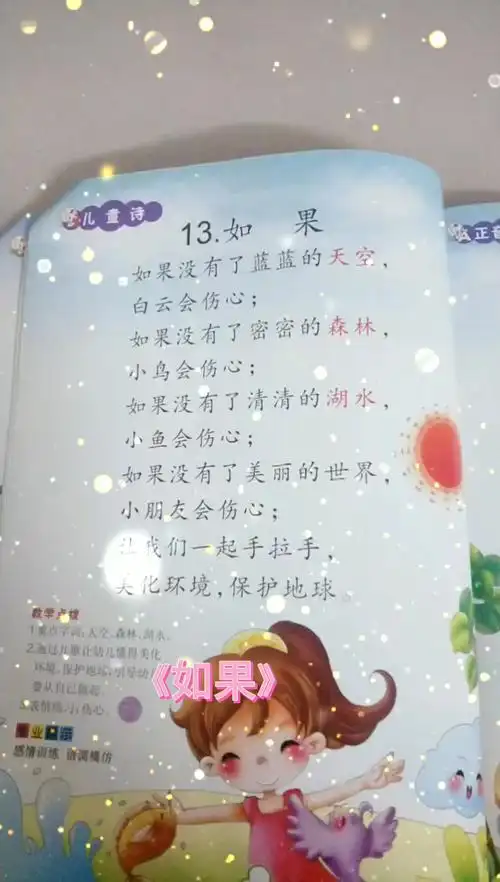 儿童诗
13.如 果
如果没有了蓝蓝的天空，
白云会伤心；
如果没有了密密的森林，
小鸟会伤心；
如果没有了清清的湖水，
小鱼会伤心；
如果没有了美丽的世界，
小朋友会伤心；
让我们一起手拉手，
美化环境，保护地球
教学点拨
1.重点字词：天空、森林、湖水。
2.通过儿歌让幼儿懂得美化
环境、保护地球，
要从自己做起。
伤心。
《如果》
感情训练 语调模仿
正音